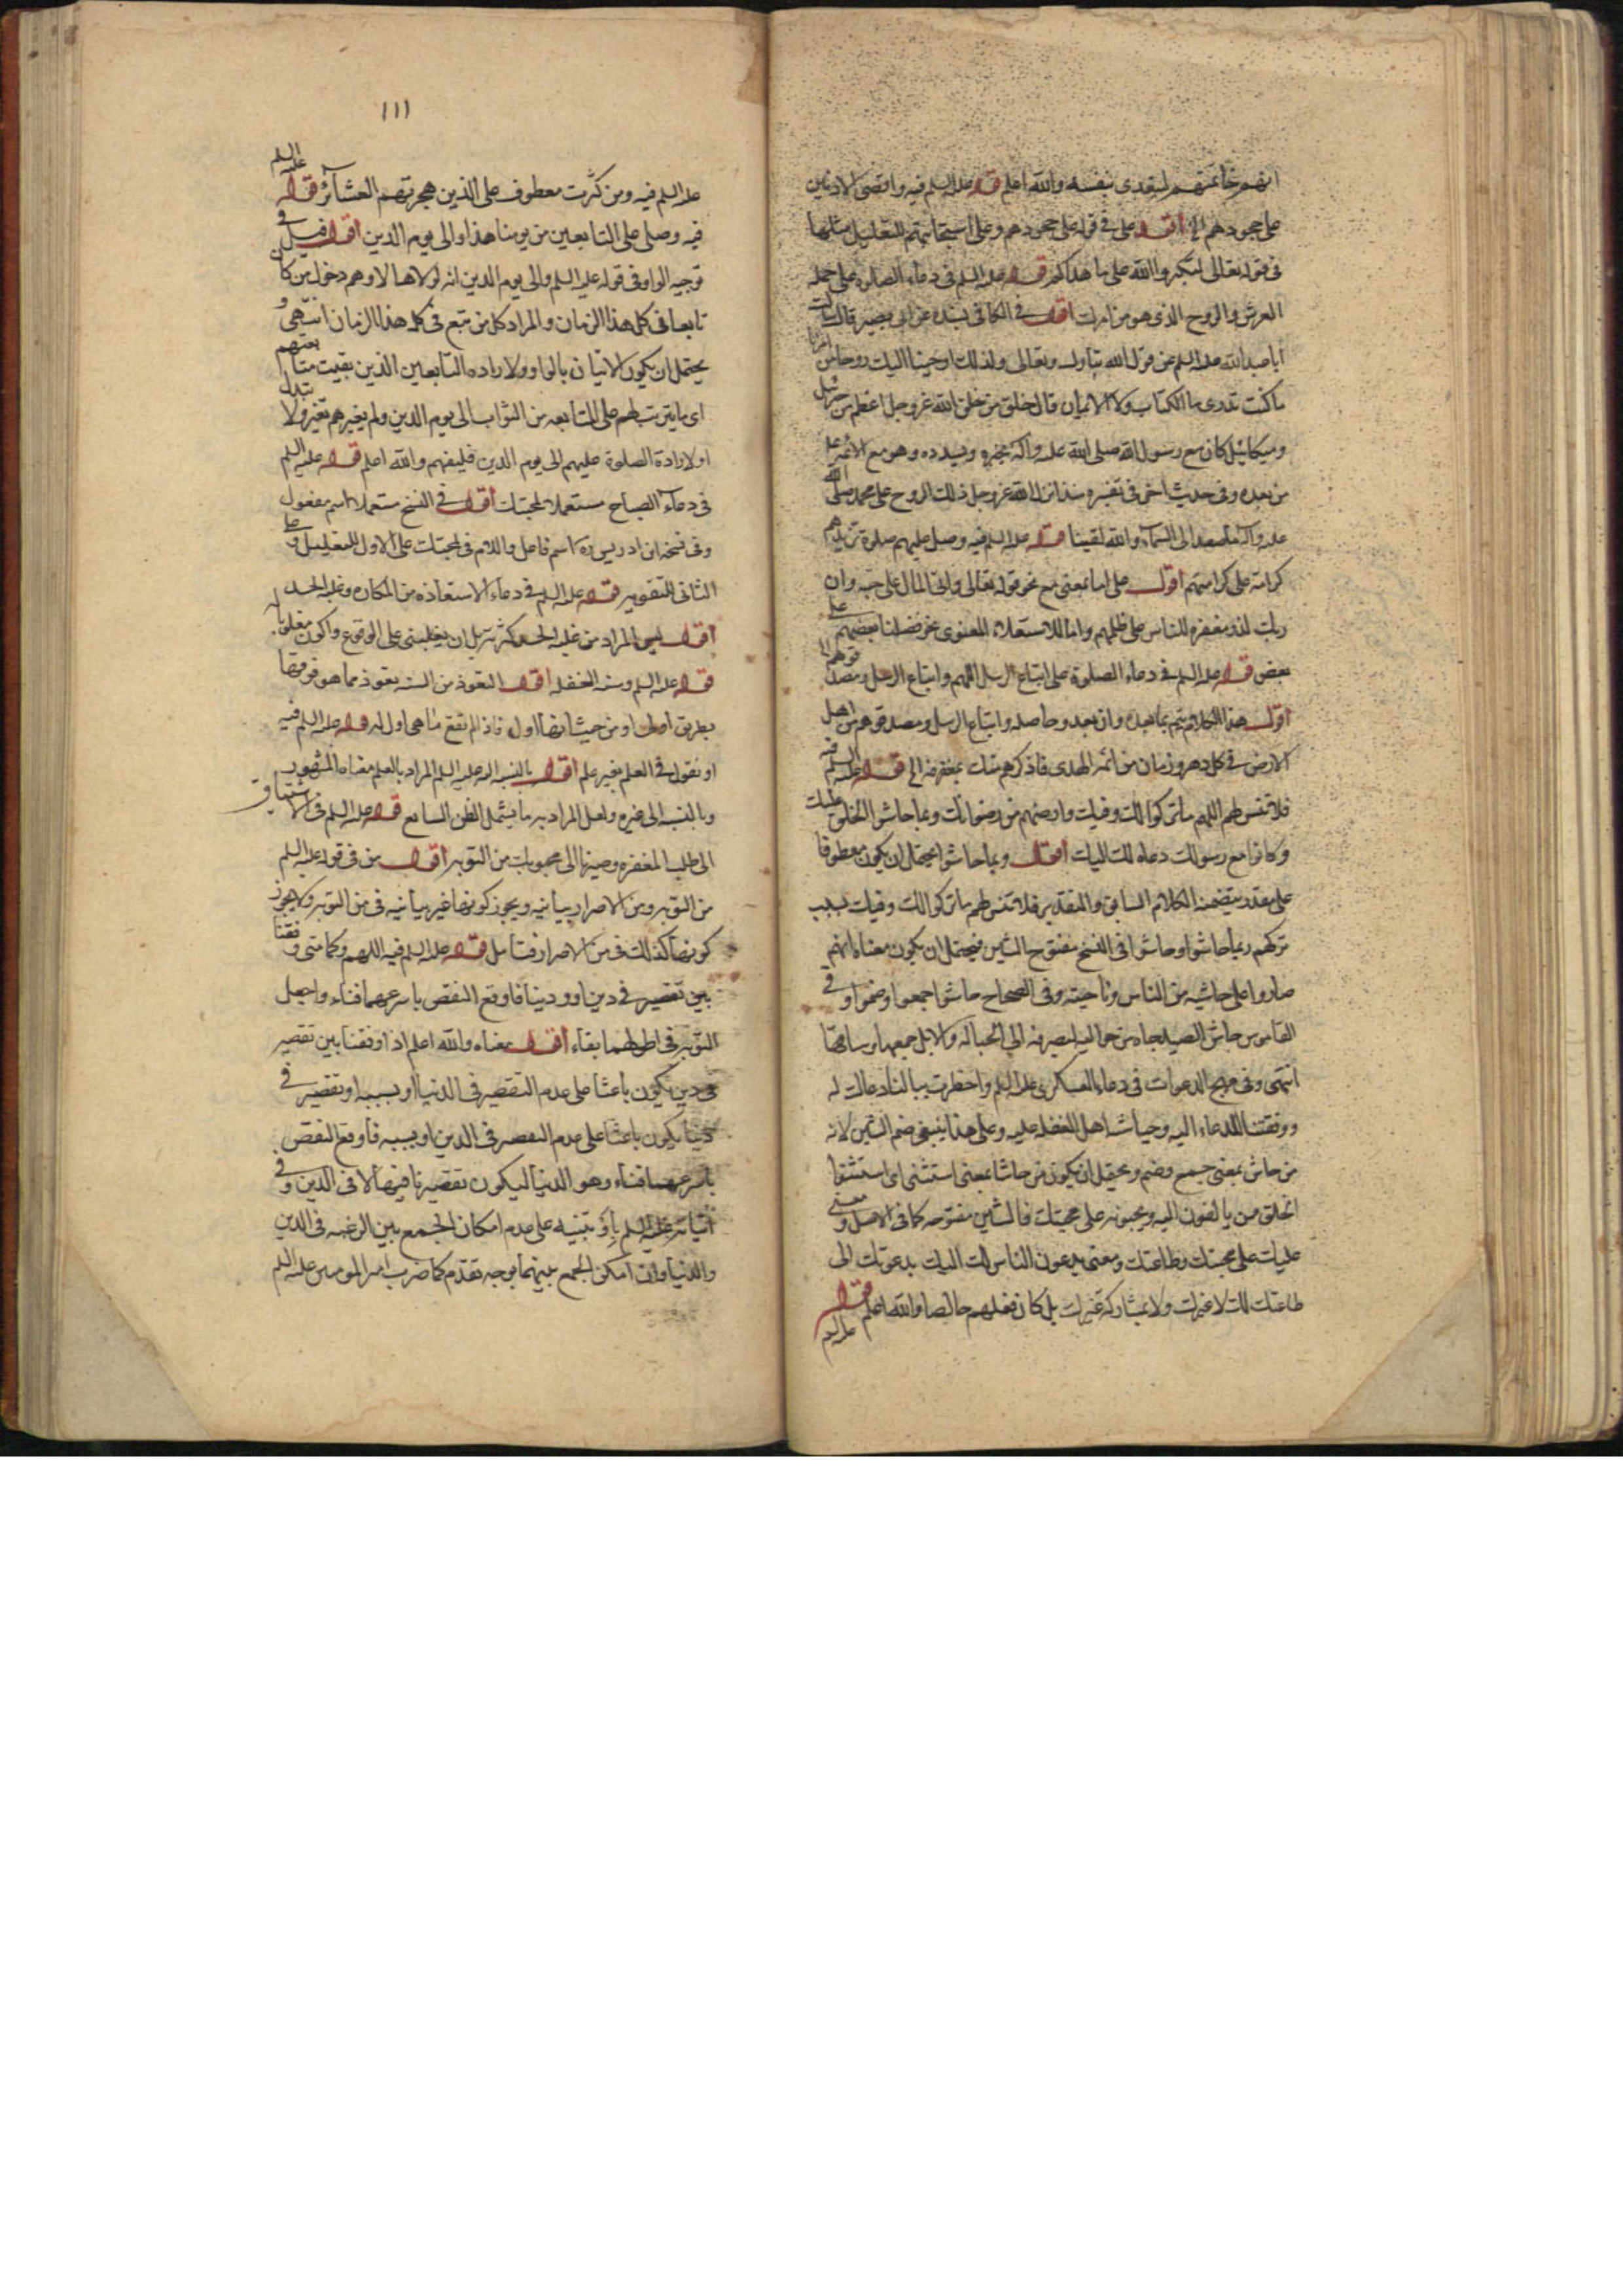 انهم خاتمتهم ليقتدى بنفسه والله اعلم قوله عليه السلم فيه واقصى الادنين
على جحودهم الخ اقول على فى قوله على جحودهم وعلى استجابتهم للتعليل مثلها
فى قوله تعالى لتكبروا الله على ما هداكم قوله عليه السلم فى دعاء الصلوة على حملة
العرش والروح الذى هو من امرك اقول فى الكافى بسنده عن ابى بصير قال سالت
ابا عبد الله عليه السلم عن قول الله تبارك وتعالى وكذلك اوحينا اليك روحا من امرنا
ما كنت تدرى ما الكتاب ولا الايمان قال خلق من خلق الله عز وجل اعظم من جبرئيل
وميكائيل كان مع رسول الله صلى الله عليه وآله يخبره ويسدده وهو مع الائمة
من بعده وفى حديث آخر فى تفسيره منذ انزل الله عز وجل ذلك الروح على محمد صلى الله
عليه وآله ما صعد الى السماء وانه لفينا قوله عليه السلم فيه وصل عليهم صلوة تزيدهم
كرامة على كرامتهم اقول على اما بمعنى مع نحو قوله تعالى وآتى المال على حبه وان
ربك لذو مغفرة للناس على ظلمهم واما للاستعلاء المعنوى نحو فضلنا بعضهم على
بعض قوله عليه السلم فى دعاء الصلوة على اتباع الرسل اللهم واتباع الرسل ومصدقوهم
اقول هذا الكلام يتم بما بعده وان بعد وحاصله واتباع الرسل ومصدقوهم من اهل
الارض فى كل دهر وزمان من ائمة الهدى فاذكرهم منك بمغفرة الخ قوله عليه السلم فيه
فلا تنس لهم اللهم ما تركوا لك وفيك وارضهم من رضوانك وبما حاشوا الخلق عليك
وكانوا مع رسولك دعاة لك اليك اقول وبما حاشوا يحتمل ان يكون معطوفا
على مقدر يتضمنه الكلام السابق والتقدير فلا تنس لهم ما تركوا لك وفيك بسبب
تركهم وبما حاشوا وحاشوا فى النسخ مفتوح الشين فيحتمل ان يكون معناه انهم
صاروا على حاشية من الناس وناحيته وفى الصحاح حاشوا جمعوا وضموا وفى
القاموس حاش الصيد جاءه من حواليه ليصرفه الى الحبالة والابل جمعها وساقها
انتهى وفى مهج الدعوات فى دعاء العسكرى عليه السلم واخطرت ببالنا دعاك له
ووفقتنا للدعاء اليه وحياشة اهل الغفلة عليه وعلى هذا ينبغى ضم الشين لانه
من حاش بمعنى جمع وضم ويحتمل ان يكون من حاشا بمعنى استثنى اى استثنوا
الخلق من يالفون اليه ويحبونه على محبتك فالشين مفتوحه كما فى الاصل ومعنى
عليك على محبتك وطاعتك ومعنى يدعون الناس لك اليك يدعونك الى
طاعتك لك لا لغيرك ولا بمشاركة غيرك بل كان فعلهم خالصا والله اعلم قوله
عليه السلم
١١١
عليه السلم فيه ومن كثرت معطوف على الذين هجرتهم العشائر قوله عليه السلم
فيه وصلى على التابعين من يومنا هذا والى يوم الدين اقول قيل فى
توجيه الواو فى قوله عليه السلم والى يوم الدين انه لولاها لاوهم دخول من كان
تابعا فى كل هذا الزمان والمراد كل من تبع فى كله هذا الزمان انتهى و
يحتمل ان يكون الاتيان بالواو ولارادة التابعين الذين بقيت متابعتهم
اى ما يترتب لهم على المتابعه من الثواب الى يوم الدين ولم يغيرهم تغير ولا تبدل
او لارادة الصلوة عليهم الى يوم الدين فليفهم والله اعلم قوله عليه السلم
فى دعاء الصباح مستعملا لمحبتك اقول فى النسخ مستعملا اسم مفعول
وفى نسخة ابن ادريس ره اسم فاعل واللام فى لمحبتك على الاول للتعليل وعلى
الثانى للتقوية قوله عليه السلم فى دعاء الاستعاذه من المكاره وغلبة الحسد
اقول ليس المراد من غلبة الحسد كثرته بل ان يغلبنى على الوقوع واكون مغلوبا له
قوله عليه السلم وسنة الغفلة اقول التعوذ من السنه تعوذ مما هو فوقها
بطريق اولى او من حيث انها اول فاذا لم تقع ما هى اول له قوله عليه السلم فيه
او نقول فى العلم بغير علم اقول بالنسبة اليه عليه السلم المراد بالعلم معناه المشهور
وبالنسبة الى غيره ولعل المراد به ما يشمل الظن السايع قوله عليه السلم فى الاشتياق
الى طلب المغفره وصيرنا الى محبوبك من التوبة اقول من فى قوله عليه السلم
من التوبه ومن الاصرار بيانيه ويجوز كونها غير بيانيه فى من التوبه ولا يجوز
كونها كذلك فى من الاصرار فتامل قوله عليه السلم فيه اللهم وكما متى وقفنا
بين تقصير فى دين او دنيا فاوقع النقص باسرعهما فناء واجعل
التوبة فى اطولهما بقاء اقول معناه والله اعلم اذا وقفنا بين تقصير
فى دين يكون باعثا على عدم التقصير فى الدنيا او بسببه او تقصير فى
دنيا يكون باعثا على عدم التقصير فى الدين او بسببه فاوقع النقص
باسرعهما فناء وهو الدنيا ليكون تقصيرنا فيها لا فى الدين وفى
اتيانه عليه السلم باو تنبيه على عدم امكان الجمع بين الرغبه فى الدين
والدنيا وان امكن الجمع بينهما بوجه تقدم كما ضرب امير المومنين عليه السلم